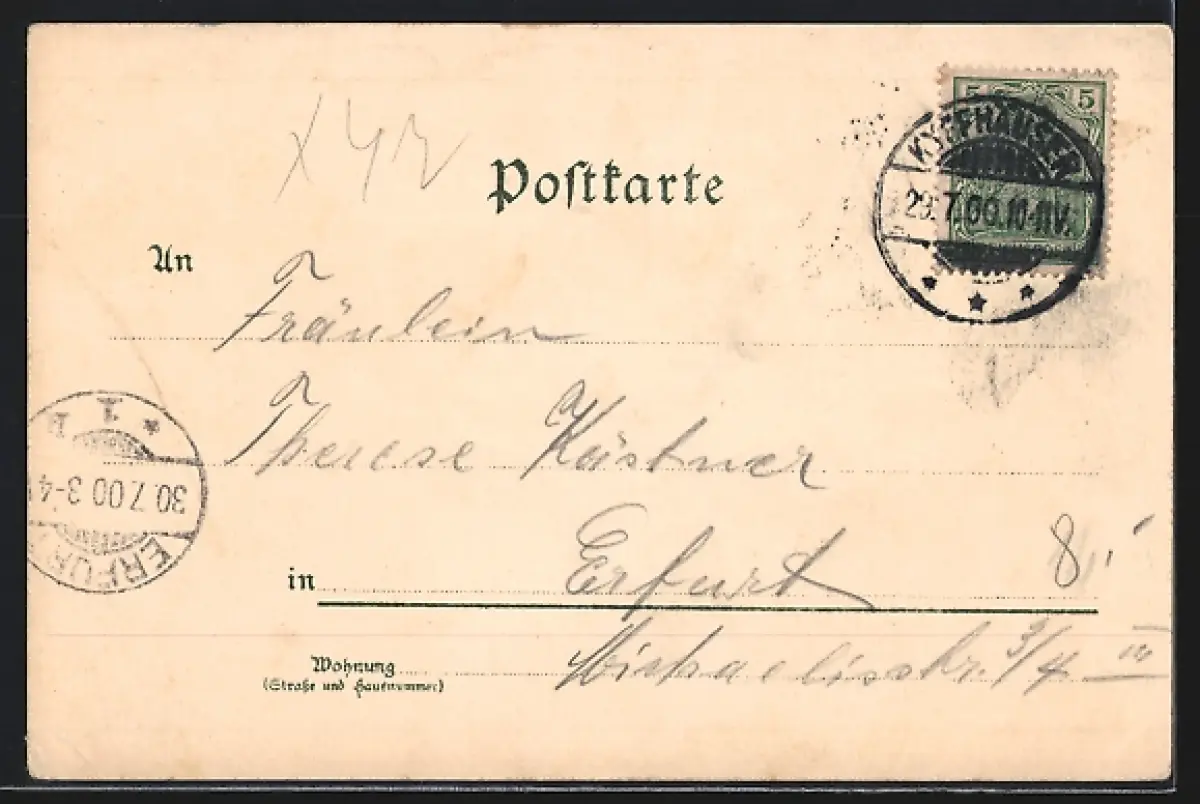 x 4 r
Postkarte
5 5
KYFFHÄUSER
29.7.00.10-11V.
An
Fräulein
Therese Kästner
30.7.00 3-4
ERFUR
in Erfurt 8
Wohnung Michaelisstr. 3/4 III
(Straße und Hausnummer)